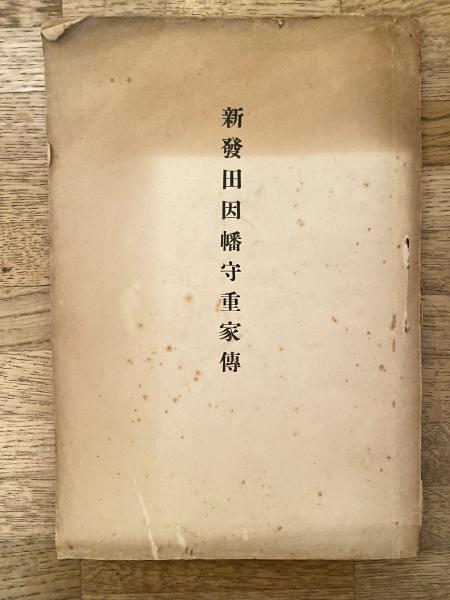 新發田因幡守重家傳